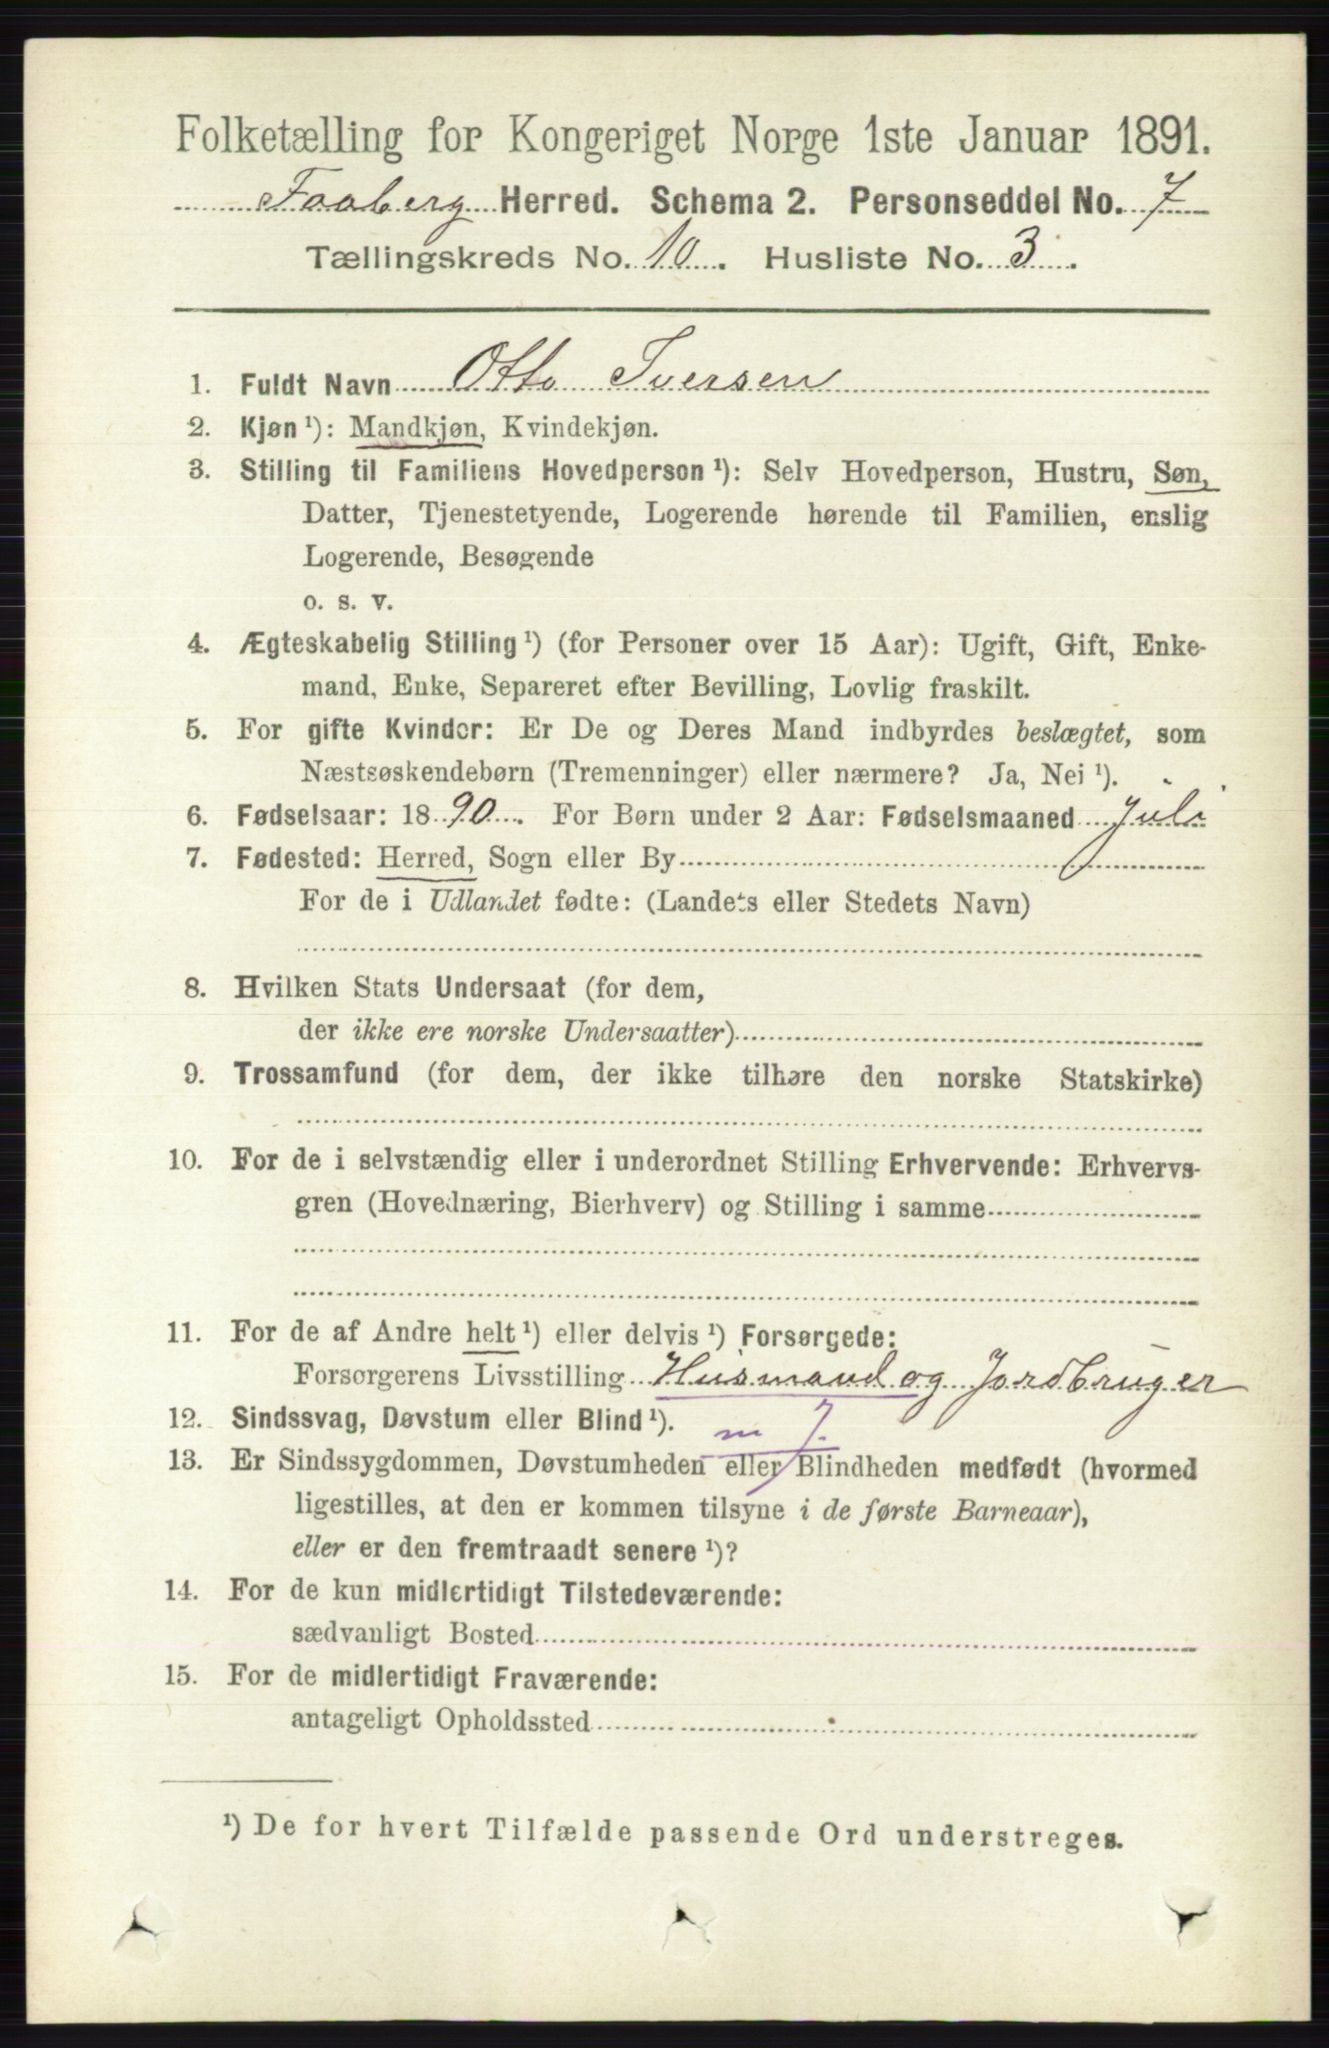 Folketælling for Kongeriget Norge 1ste Januar 1891.
Faaberg Herred. Schema 2. Personseddel No. 7
Tællingskreds No. 10. Husliste No. 3.
1. Fuldt Navn Otto Iversen
2. Kjøn ¹): Mandkjøn, Kvindekjøn.
3. Stilling til Familiens Hovedperson ¹): Selv Hovedperson, Hustru, Søn,
Datter, Tjenestetyende, Logerende hørende til Familien, enslig
Logerende, Besøgende
o. s. v.
4. Ægteskabelig Stilling ¹) (for Personer over 15 Aar): Ugift, Gift, Enke-
mand, Enke, Separeret efter Bevilling, Lovlig fraskilt.
5. For gifte Kvinder: Er De og Deres Mand indbyrdes beslægtet, som
Næstsøskendebørn (Tremenninger) eller nærmere? Ja, Nei ¹).
6. Fødselsaar: 1890. For Børn under 2 Aar: Fødselsmaaned Juli
7. Fødested: Herred, Sogn eller By
For de i Udlandet fødte: (Landets eller Stedets Navn)
8. Hvilken Stats Undersaat (for dem,
der ikke ere norske Undersaatter)
9. Trossamfund (for dem, der ikke tilhøre den norske Statskirke)
10. For de i selvstændig eller i underordnet Stilling Erhvervende: Erhvervs-
gren (Hovednæring, Bierhverv) og Stilling i samme
11. For de af Andre helt ¹) eller delvis ¹) Forsørgede:
Forsørgerens Livsstilling Husmand og Jordbruger
12. Sindssvag, Døvstum eller Blind ¹). m 7.
13. Er Sindssygdommen, Døvstumheden eller Blindheden medfødt (hvormed
ligestilles, at den er kommen tilsyne i de første Barneaar),
eller er den fremtraadt senere ¹)?
14. For de kun midlertidigt Tilstedeværende:
sædvanligt Bosted
15. For de midlertidigt Fraværende:
antageligt Opholdssted
¹) De for hvert Tilfælde passende Ord understreges.